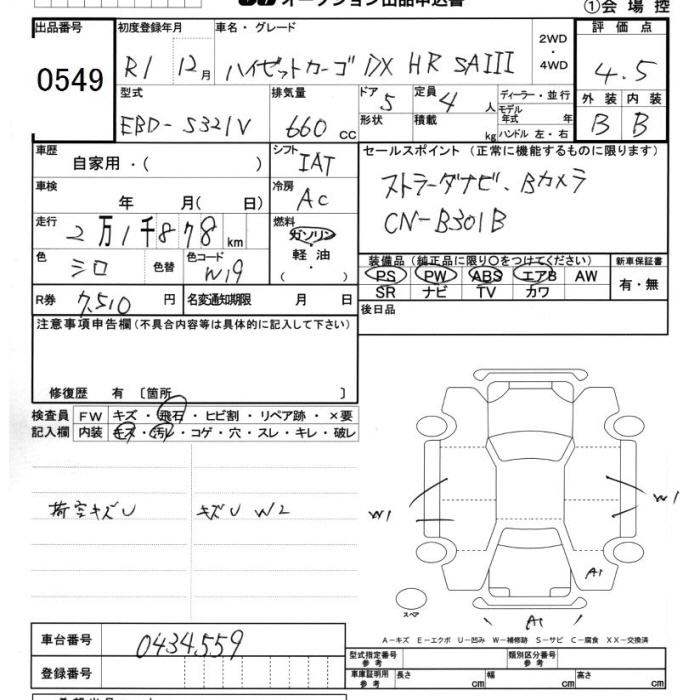 オークション出品申込書
①会場控
出品番号 初度登録年月 車名・グレード 2WD・4WD 評価点
0549 R1 12月 ハイゼットカーゴ DX HR SAIII 4.5
型式 排気量 ドア 5 定員 4人 ディーラー・並行 外装 内装
EBD-S321V 660cc 形状 積載 kg モデル年式 年 ハンドル 左・右 B B
車歴 自家用・( ) シフト IAT セールスポイント (正常に機能するものに限ります)
車検 年 月( 日) 冷房 AC ストラーダナビ、Bカメラ
走行 2万1千878km 燃料 ガソリン・軽油・( ) CN-B301B
色 シロ 色替 色コード W19 装備品(純正品に限り○をつけてください) 新車保証書
PS PW ABS エアB AW 有・無
R券 7,510円 名変通知期限 月 日 SR ナビ TV カワ
注意事項申告欄(不具合内容等は具体的に記入して下さい) 後日品
修復歴 有 〔箇所 〕
検査員 FW キズ・飛石・ヒビ割・リペア跡・×要
記入欄 内装 キズ・汚レ・コゲ・穴・スレ・キレ・破レ
荷室キズU キズU W2 W1 W1
A1
スペア A1
A-キズ E-エクボ U-凹み W-補修跡 S-サビ C-腐食 XX-交換済
車台番号 0434559 型式指定番号 参考 類別区分番号 参考
登録番号 車庫証明用 参考 長さ cm 幅 cm 高さ cm